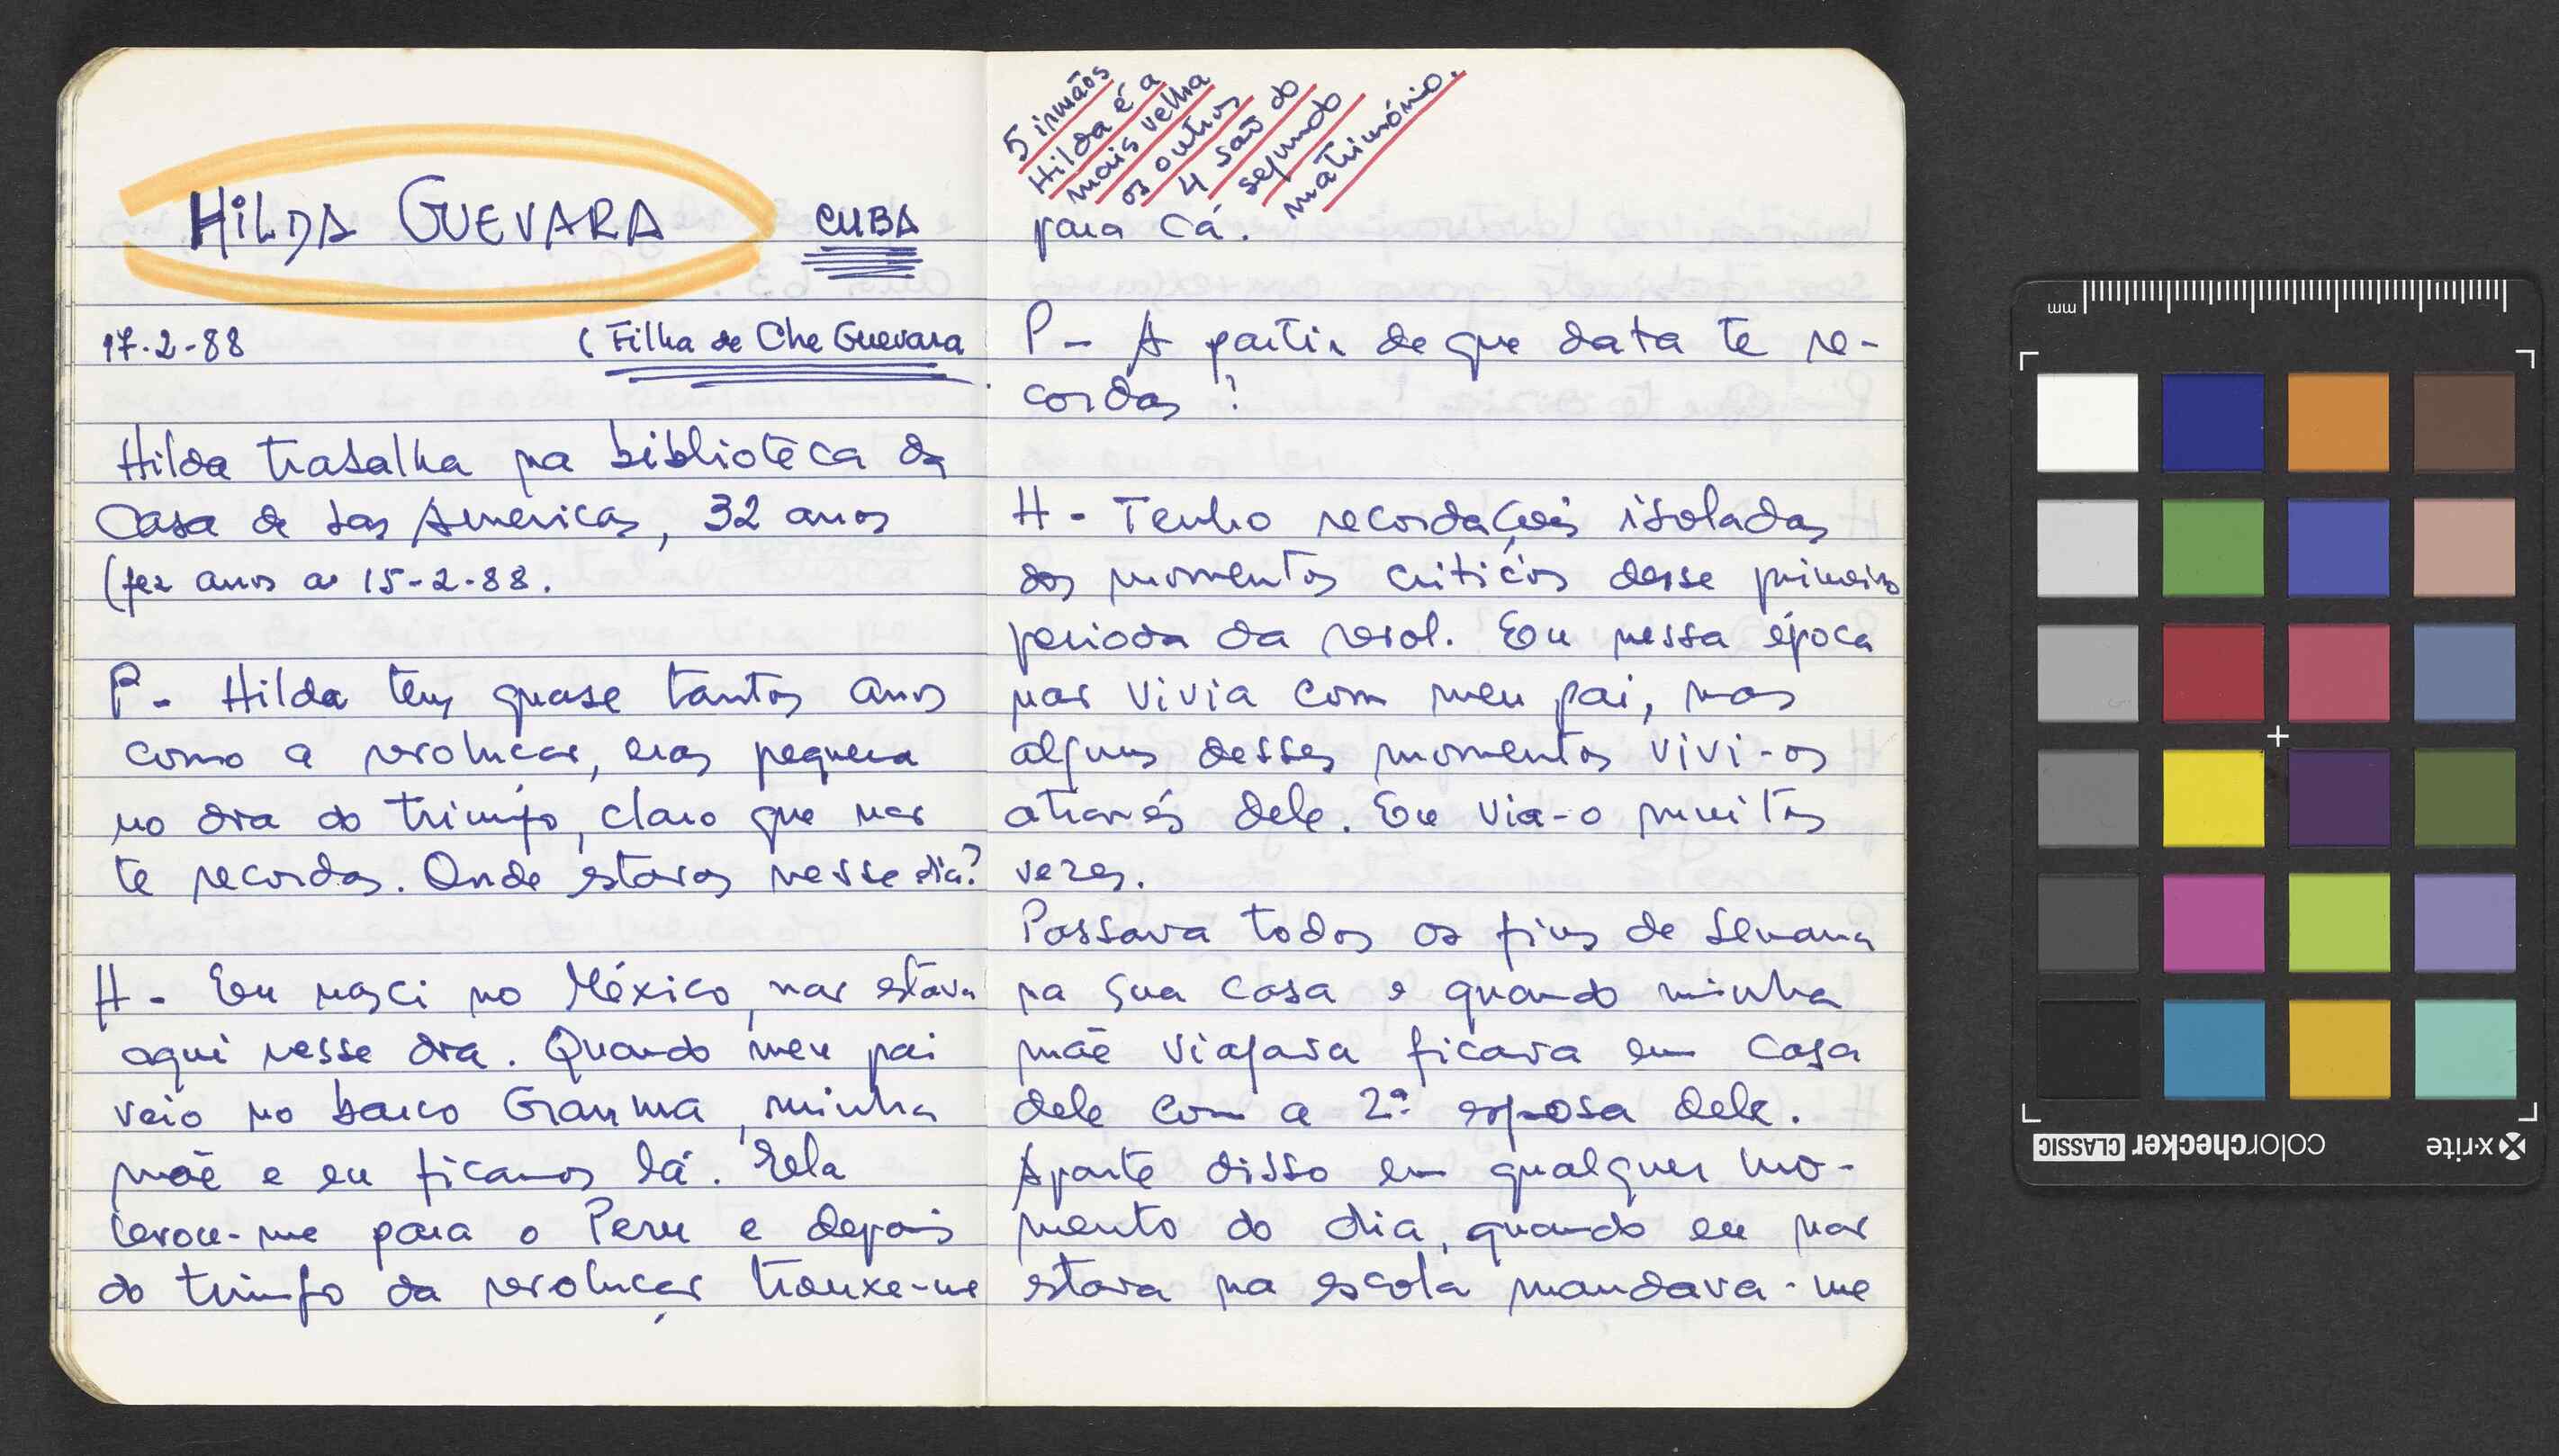 HILDA GUEVARA
CUBA
17-2-88 (Filha de Che Guevara
Hilda trabalha na biblioteca da
Casa de Las Americas, 32 anos
(fez anos a 15-2-88.
P- Hilda tem quase tantos anos
como a revolução, eras pequena
no dia do triunfo, claro que não
te recordas. Onde estavas nesse dia?
H- Eu nasci no México, não estava
aqui nesse dia. Quando meu pai
veio no barco Granma, minha
mãe e eu ficamos lá. Ela
levou-me para o Peru e depois
do triunfo da revolução trouxe-me
5 irmãos
Hilda é a
mais velha
os outros
4 são do
segundo
matrimónio.
para cá.
P- A partir de que data te re-
cordas?
H- Tenho recordações isoladas
dos momentos criticos desse primeiro
perioda da revol. Eu nessa época
não vivia com meu pai, mas
alguns desses momentos vivi-os
através dele. Eu via-o muitas
vezes.
Passava todos os fins de semana
na sua casa e quando minha
mãe viajava ficava em casa
dele com a 2ª esposa dele.
Aparte disso em qualquer mo-
mento do dia, quando eu não
estava na escola mandava-me
mm
x-rite colorchecker CLASSIC